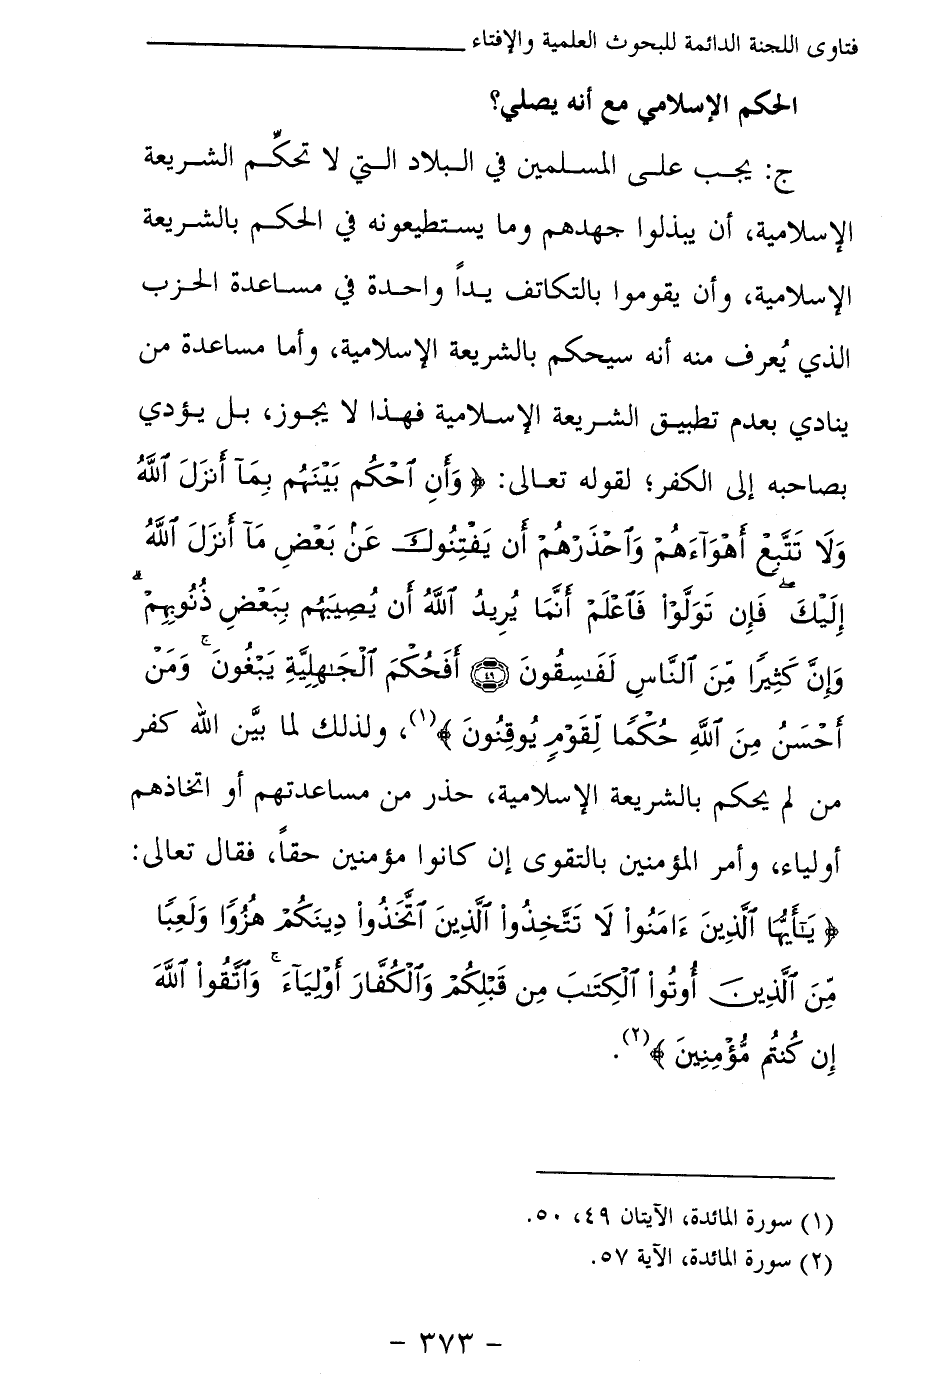 فتاوى اللجنة الدائمة للبحوث العلمية والإفتاء
الحكم الإسلامي مع أنه يصلي؟
ج: يجب على المسلمين في البلاد التي لا تحكِّم الشريعة
الإسلامية، أن يبذلوا جهدهم وما يستطيعونه في الحكم بالشريعة
الإسلامية، وأن يقوموا بالتكاتف يداً واحدة في مساعدة الحزب
الذي يُعرف منه أنه سيحكم بالشريعة الإسلامية، وأما مساعدة من
ينادي بعدم تطبيق الشريعة الإسلامية فهذا لا يجوز، بل يؤدي
بصاحبه إلى الكفر؛ لقوله تعالى: ﴿ وَأَنِ ٱحْكُم بَيْنَهُم بِمَآ أَنزَلَ ٱللَّهُ
وَلَا تَتَّبِعْ أَهْوَآءَهُمْ وَٱحْذَرْهُمْ أَن يَفْتِنُوكَ عَنۢ بَعْضِ مَآ أَنزَلَ ٱللَّهُ
إِلَيْكَ ۖ فَإِن تَوَلَّوْا۟ فَٱعْلَمْ أَنَّمَا يُرِيدُ ٱللَّهُ أَن يُصِيبَهُم بِبَعْضِ ذُنُوبِهِمْ ۗ
وَإِنَّ كَثِيرًا مِّنَ ٱلنَّاسِ لَفَـٰسِقُونَ ﴿٤٩﴾ أَفَحُكْمَ ٱلْجَـٰهِلِيَّةِ يَبْغُونَ ۚ وَمَنْ
أَحْسَنُ مِنَ ٱللَّهِ حُكْمًا لِّقَوْمٍ يُوقِنُونَ ﴾(١)، ولذلك لما بيَّن الله كفر
من لم يحكم بالشريعة الإسلامية، حذر من مساعدتهم أو اتخاذهم
أولياء، وأمر المؤمنين بالتقوى إن كانوا مؤمنين حقاً، فقال تعالى:
﴿ يَـٰٓأَيُّهَا ٱلَّذِينَ ءَامَنُوا۟ لَا تَتَّخِذُوا۟ ٱلَّذِينَ ٱتَّخَذُوا۟ دِينَكُمْ هُزُوًا وَلَعِبًا
مِّنَ ٱلَّذِينَ أُوتُوا۟ ٱلْكِتَـٰبَ مِن قَبْلِكُمْ وَٱلْكُفَّارَ أَوْلِيَآءَ ۚ وَٱتَّقُوا۟ ٱللَّهَ
إِن كُنتُم مُّؤْمِنِينَ ﴾(٢).
(١) سورة المائدة، الآيتان ٤٩، ٥٠.
(٢) سورة المائدة، الآية ٥٧.
- ٣٧٣ -